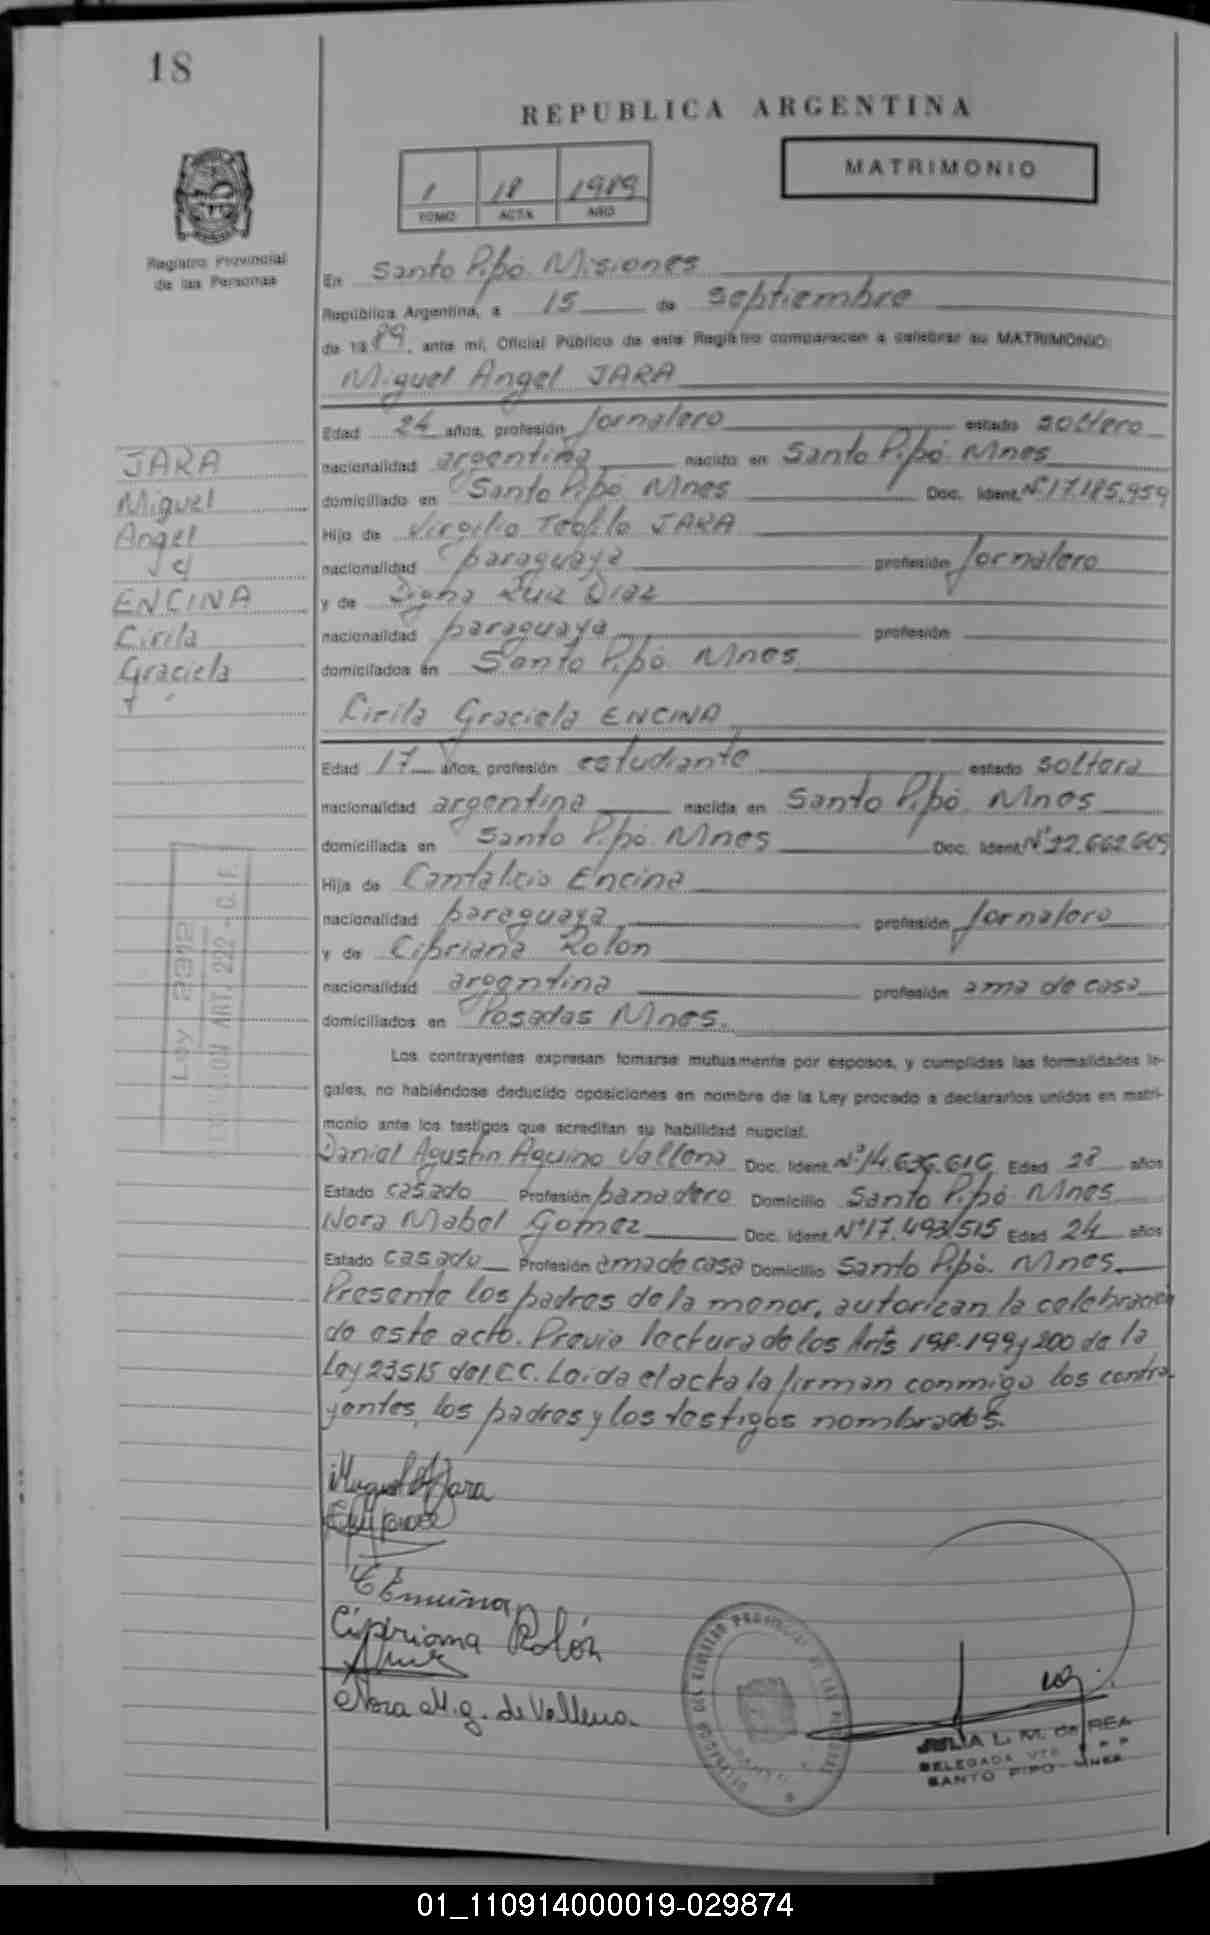 18
REPUBLICA ARGENTINA
1 18 1989
TOMO ACTA AÑO
MATRIMONIO
Registro Provincial
de las Personas
En Santo Pipó Misiones
República Argentina, a 15 de Septiembre
de 1989, ante mí, Oficial Público de este Registro comparecen a celebrar su MATRIMONIO:
Miguel Angel JARA
Edad 24 años, profesión Jornalero estado soltero
nacionalidad argentina nacido en Santo Pipó Mnes
domiciliado en Santo Pipó Mnes Doc. Ident. Nº 17.185.959
Hijo de Virgilio Teófilo JARA
nacionalidad paraguaya profesión Jornalero
y de Digna Diaz
nacionalidad paraguaya profesión
domiciliados en Santo Pipó Mnes
JARA
Miguel
Angel
y
ENCINA
Cirila
Graciela
Cirila Graciela ENCINA
Edad 17 años, profesión estudiante estado soltera
nacionalidad argentina nacida en Santo Pipó. Mnes
domiciliada en Santo Pipó Mnes Doc. Ident. Nº 22.662.605
Hija de Cantalicio Encina
nacionalidad paraguaya profesión Jornalero
y de Cipriana Rolon
nacionalidad argentina profesión ama de casa
domiciliados en Posadas Mnes.
Ley 2312
ART. 222 - C. F.
Los contrayentes expresan tomarse mutuamente por esposos, y cumplidas las formalidades le-
gales, no habiéndose deducido oposiciones en nombre de la Ley procedo a declararlos unidos en matri-
monio ante los testigos que acreditan su habilidad nupcial.
Daniel Agustin Aquino Vallena Doc. Ident. Nº 14.636.616 Edad 28 años
Estado casado Profesión panadero Domicilio Santo Pipó Mnes
Nora Mabel Gomez Doc. Ident. Nº 17.493.515 Edad 24 años
Estado casado Profesión ama de casa Domicilio Santo Pipó. Mnes.
Presente los padres de la menor, autorizan la celebración
de este acto. Previa lectura de los Arts 198-199 y 200 de la
Ley 23515 del C.C. Leída el acta la firman conmigo los contra
yentes, los padres y los testigos nombrados.
Miguel A Jara
Cipriana Rolón
Nora M. G. de Vallena
JULIA L. M. de REA
DELEGADA
SANTO PIPO - MNES
01_110914000019-029874